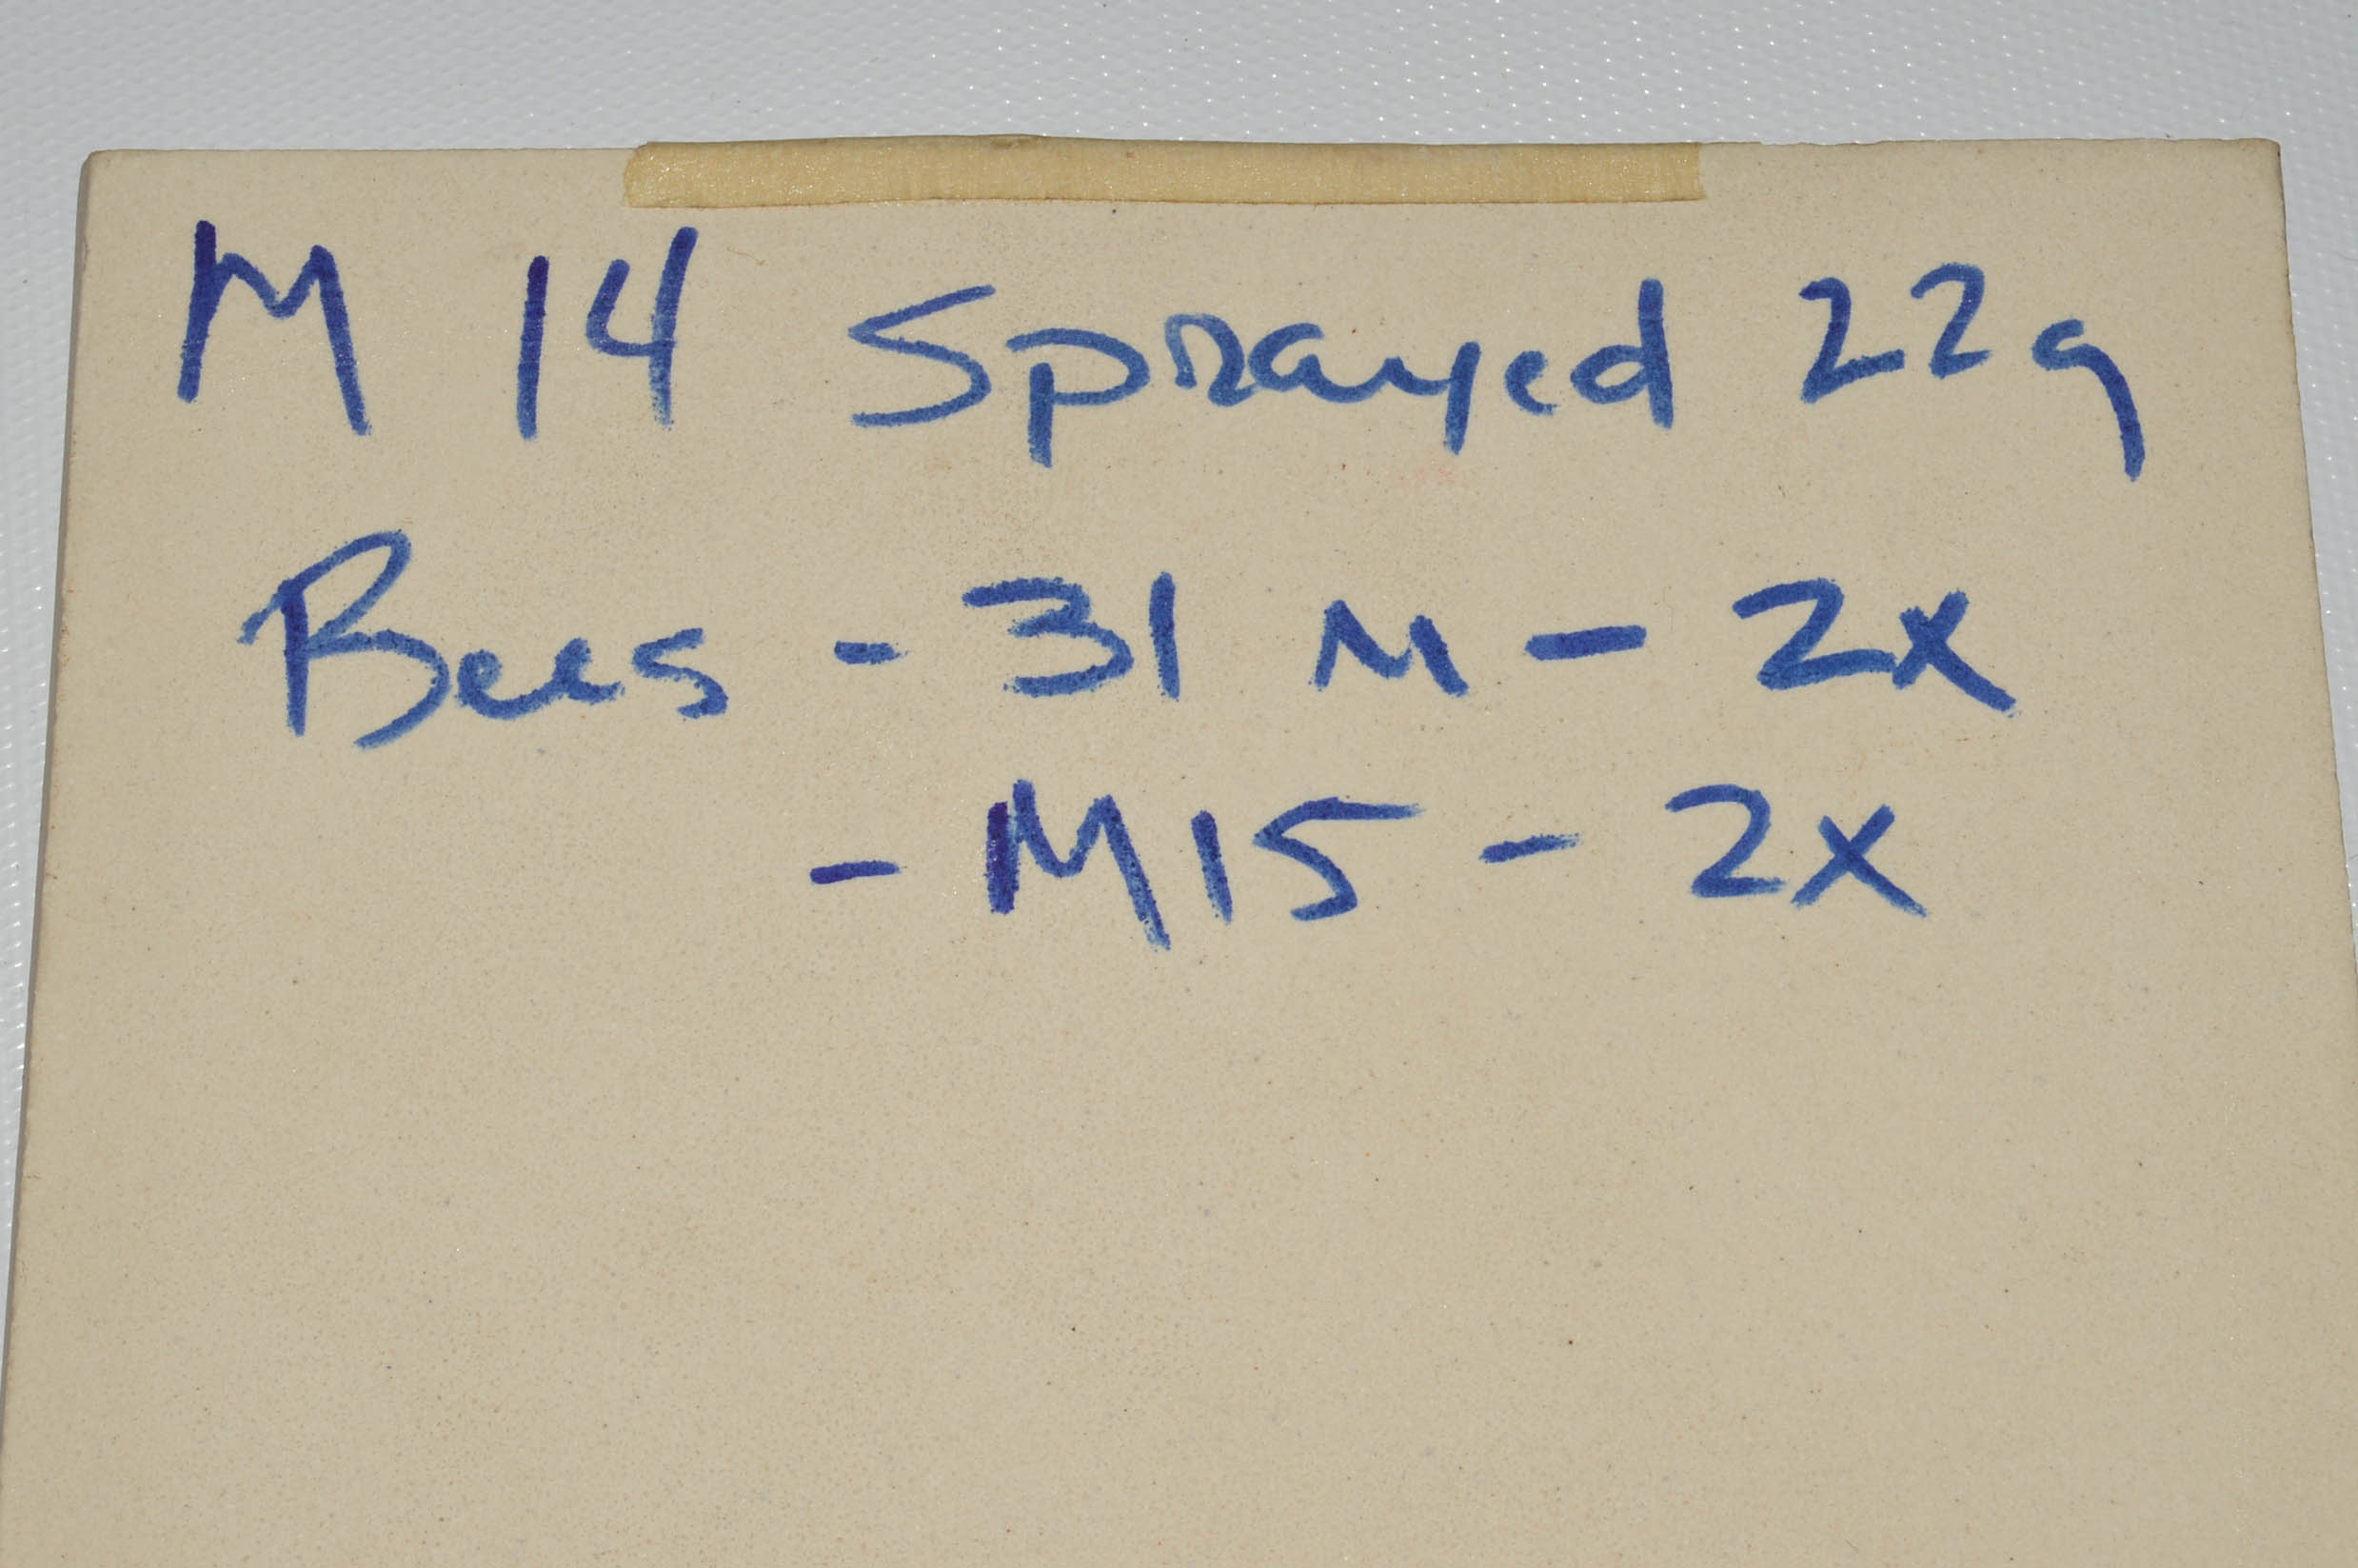 M 14 Sprayed 22g
Bees - 31 M - 2x
- M15 - 2x